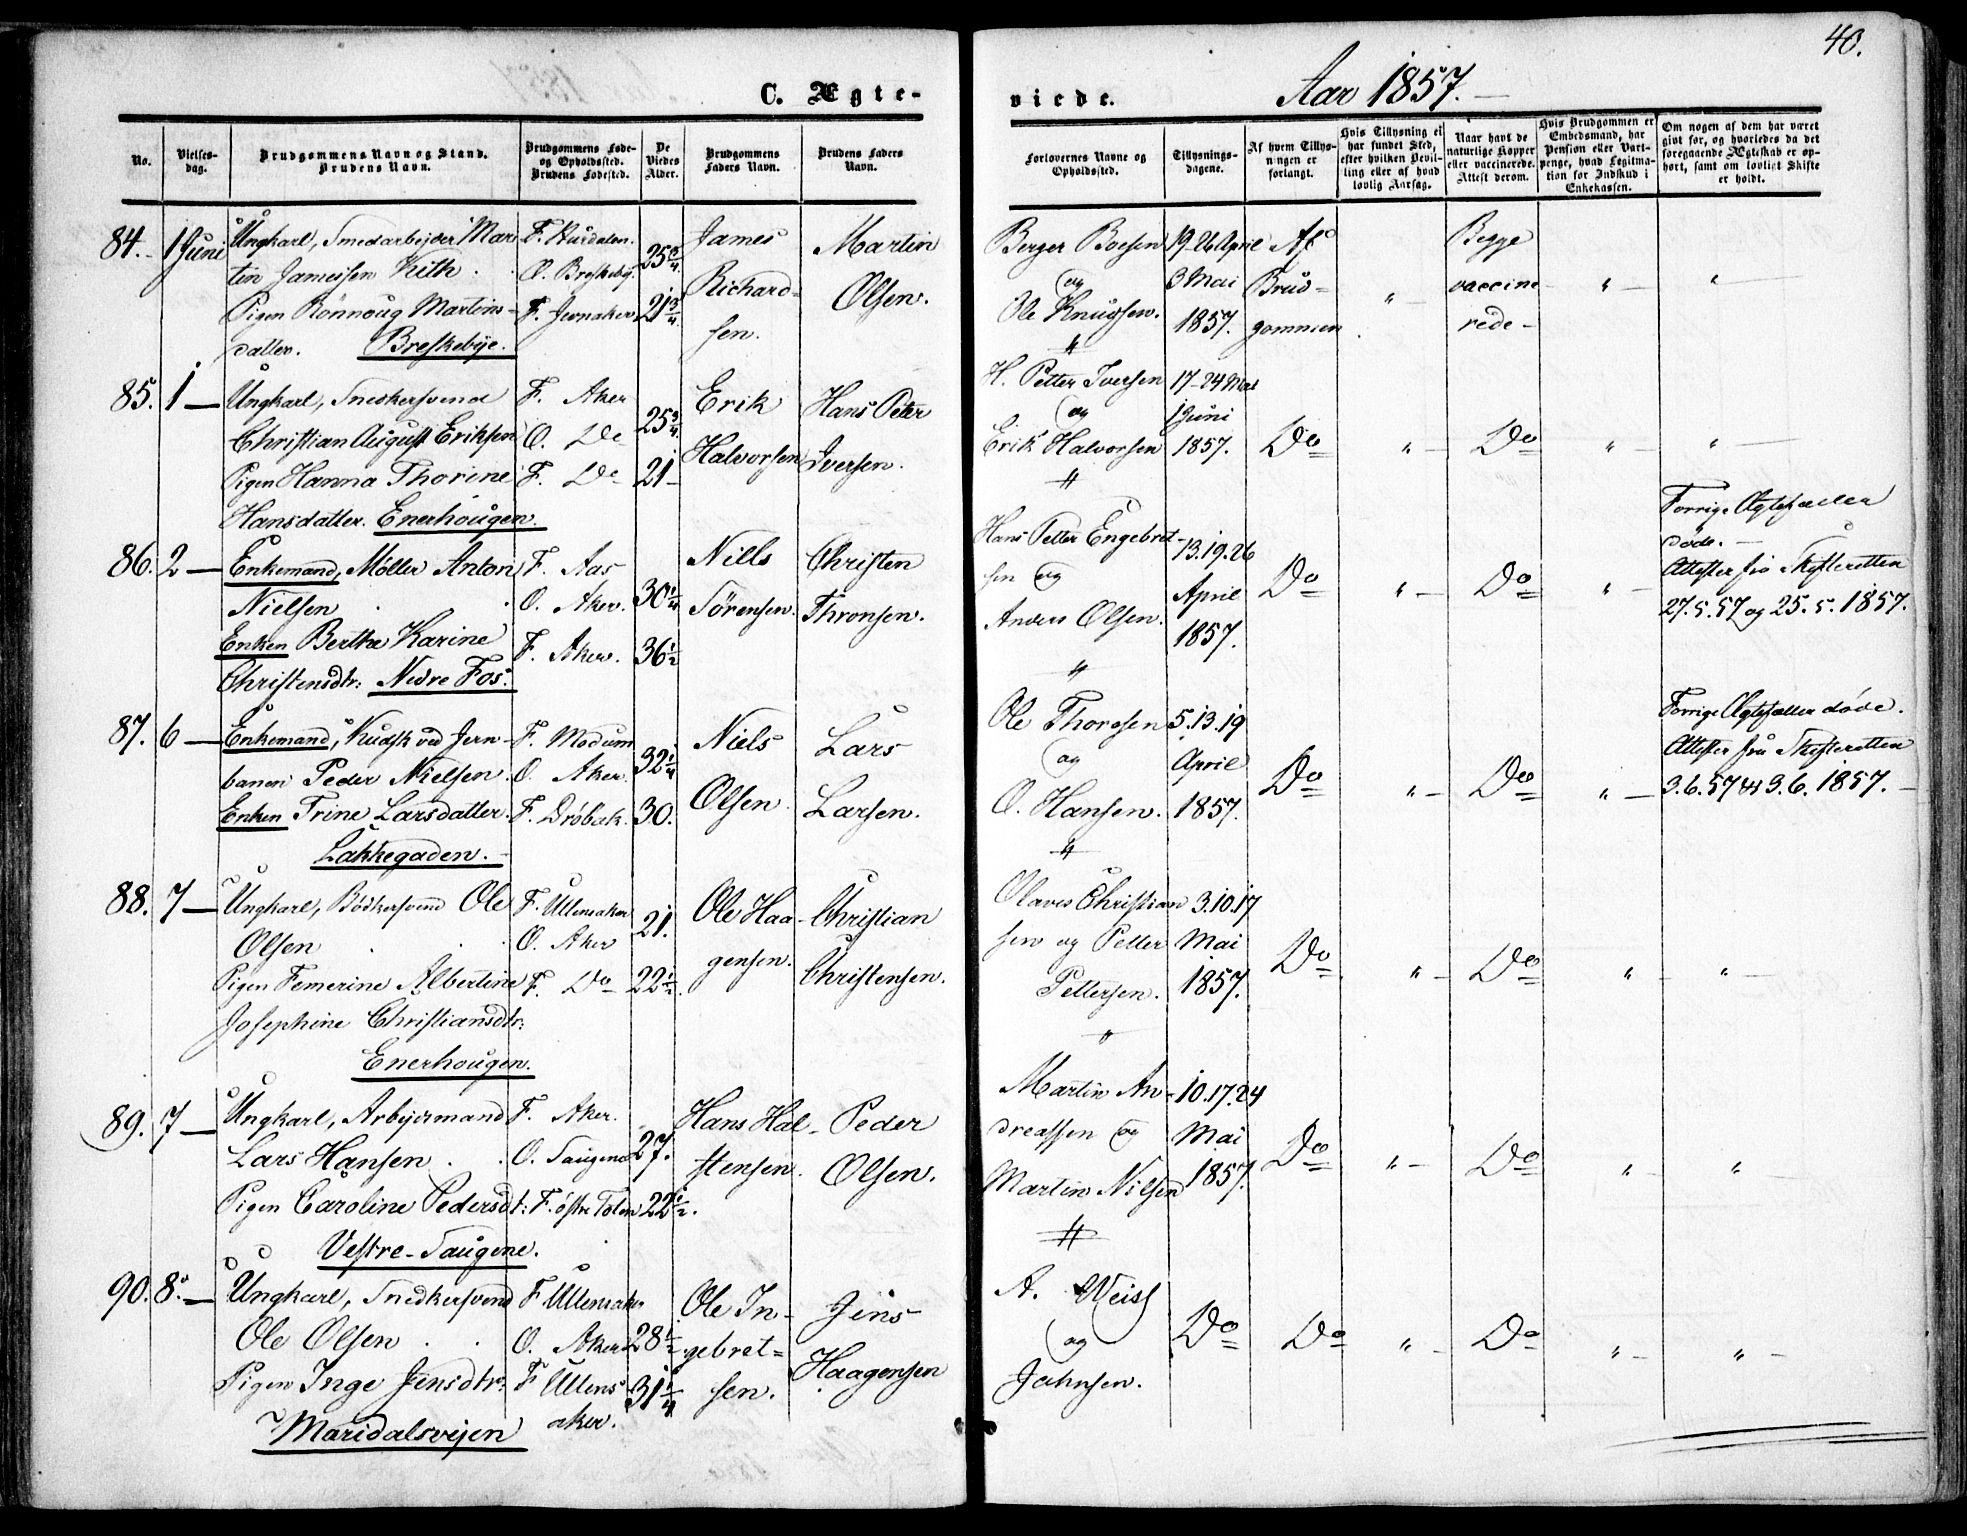 40.
C. Ægte-
viede.
Aar 1857.
No.
Vielses-
dag.
Brudgommens Navn og Stand.
Brudens Navn.
Brudgommens Føde-
og Opholdssted.
Brudens Fødested.
De
Viedes
Alder.
Brudgommens
Faders Navn.
Brudens Faders
Navn.
Forlovernes Navne og
Opholdssted.
Tillysnings-
dagene.
Af hvem Tillys-
ningen er
forlangt.
Hvis Tillysning ei
har fundet Sted,
efter hvilken Bevil-
ling eller af hvad
lovlig Aarsag.
Naar havt de
naturlige Kopper
eller vaccinerede.
Attest derom.
Hvis Brudgommen er
Embedsmand, har
Pension eller Vart-
penge, hvad Legitima-
tion for Indskud i
Enkekassen.
Om nogen af dem har været
gift før, og hvorledes da det
foregaaende Ægteskab er op-
hørt, samt om lovligt Skifte
er holdt.
84. 1 Juni
Ungkarl, Smedarbejder Mar
tin Jamessen Kith.
Pigen Rönnoug Martins-
datter. Breskebye.
F. Hurdalen.
O. Breskeby.
F. Jevnaker
25 3/4.
21 3/4.
James
Richard-
sen.
Martin
Olsen.
Berger Boesen
og
Ole Knudsen.
19-26 April
3 Mai
1857.
Af
Brud-
gommen
"
Begge
vaccine
rede-
"
"
85. 1 —
Ungkarl, Snedkersvend
Christian August Eriksen
Pigen Hanna Thorine
Hansdatter. Enerhougen.
F. Aker
O. Do
F. Do
25 3/4.
21 -
Erik
Halvorsen
Hans Peter
Iversen.
H. Petter Iversen
og
Erik Halvorsen
17-24 Mai
1 Juni
1857.
Do
"
Do
"
"
86. 2 —
Enkemand, Møller Anton
Nielsen
Enken Berthe Karine
Christensdtr: Nedre Fos.
F. Aas
O. Aker.
F. Aker.
30 1/4
36 1/2
Niels
Sörensen.
Christen
Thronsen.
Hans Petter Engebret-
sen og
Anders Olsen.
13.19.26
April
1857.
Do
"
Do
"
Forrige Ægtefæller
døde.
Attester fra Skifteretten
27.5.57 og 25.5.1857.
87. 6 —
Enkemand, Kudsk ved Jern-
banen Peder Nielsen.
Enken Trine Larsdatter.
Lakkegaden.
F. Modum
O. Aker.
F. Drøbak.
32 1/4
30.
Niels
Olsen.
Lars
Larsen.
Ole Thoresen
og
O. Hansen.
5.13.19
April
1857.
Do
"
Do
"
Forrige Ægtefæller døde.
Attester fra Skifteretten
3.6.57 og 3.6.1857.
88. 7 —
Ungkarl, Bödkersvend Ole
Olsen
Pigen Femerine Albertine
Josephine Christiansdtr:
Enerhougen.
F. Ullensaker
O. Aker
F. Do
21.
22 1/2.
Ole Haa-
gensen.
Christian
Christensen.
Olaves Christian
sen og Petter
Pettersen.
3.10.17
Mai
1857.
Do
"
Do
"
"
89. 7 —
Ungkarl, Arbejdsmand
Lars Hansen
Pigen Caroline Pedersdt:
Vestre-Saugene.
F. Aker.
O. Saugene
F. østre Toten
27.
22 1/2.
Hans Hal-
stensen.
Peder
Olsen.
Martin An-
dreassen og
Martin Nilsen
10.17.24
Mai
1857.
Do
"
Do
"
"
90. 8. —
Ungkarl, Snedkersvend
Ole Olsen
Pigen Inge Jensdtr:
Maridalsvejen
F Ullensaker
O. Aker
F Ullens
aker.
28 1/2
31 1/4
Ole In-
gebret=
sen.
Jens
Haagensen
A. Weiss
og
Jahnsen.
Do
Do
"
Do
"
"